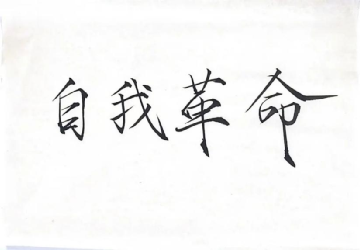 自我革命